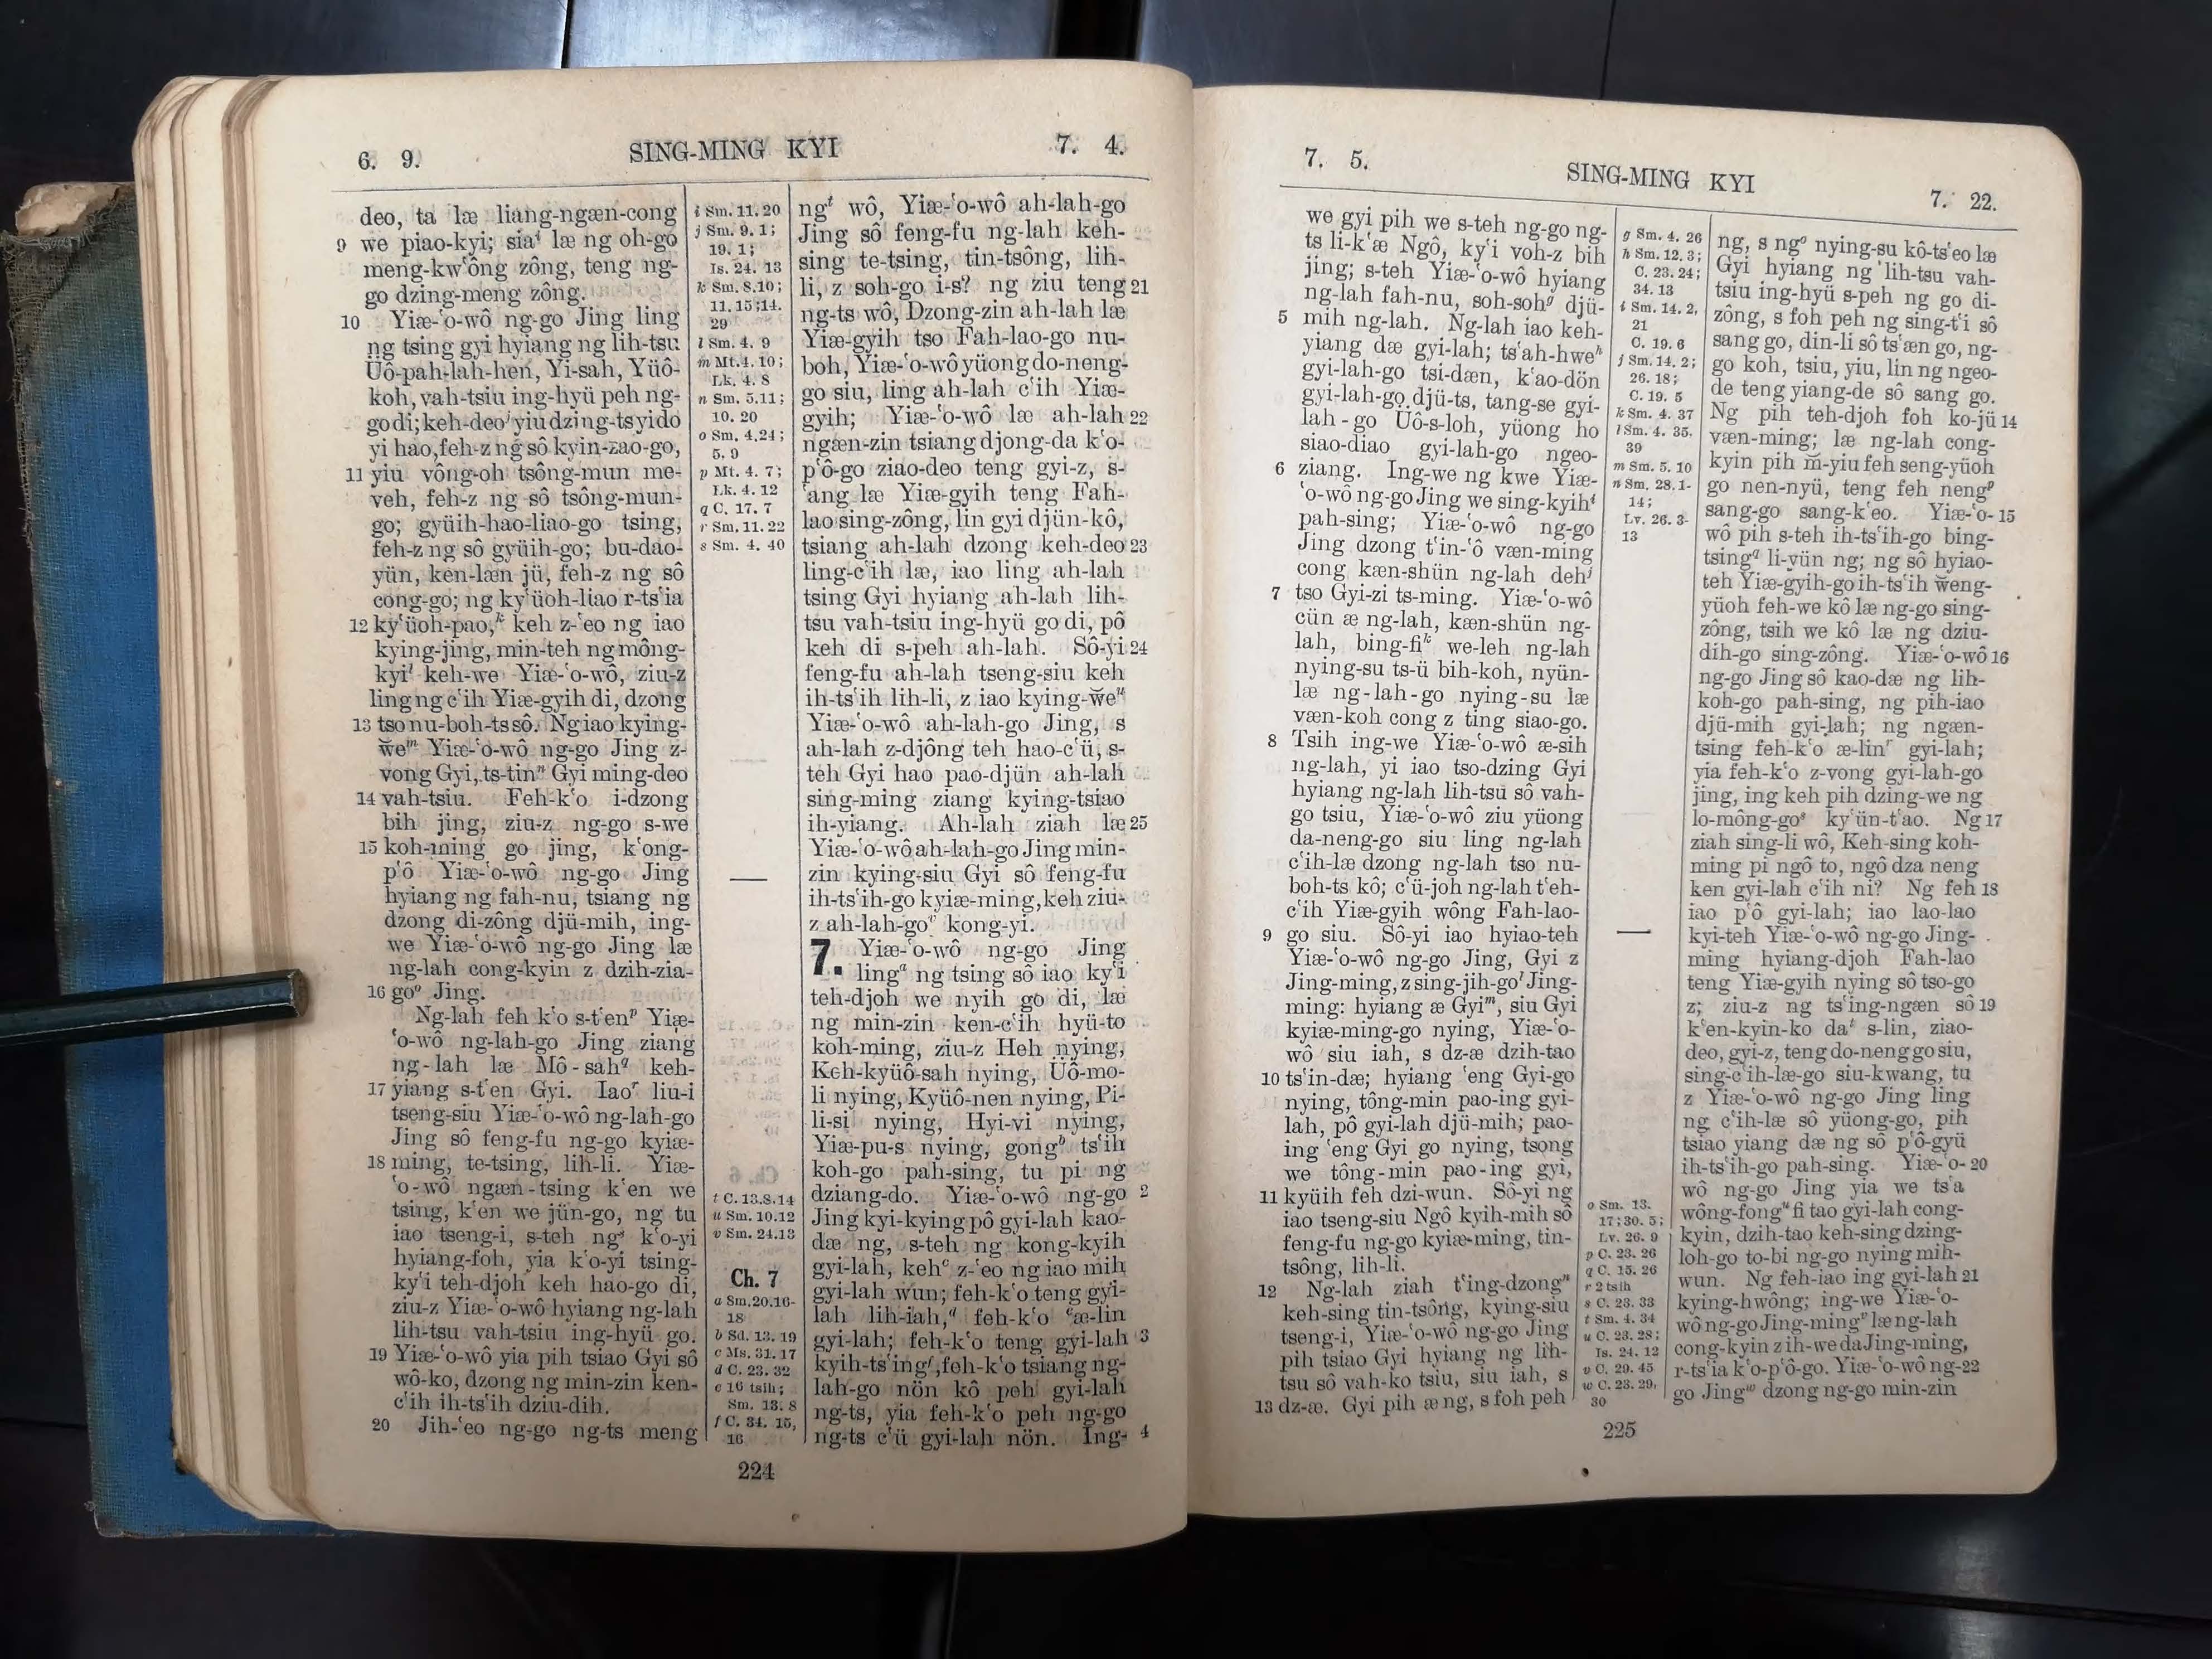 6. 9.
SING-MING KYI
7. 4.
deo, ta læ liang-ngæn-cong
9 we piao-kyi; siaⁱ læ ng oh-go
meng-kwʻông zông, teng ng-
go dzing-meng zông.
10 Yiæ-ʻo-wô ng-go Jing ling
ng tsing gyi hyiang ng lih-tsu
Üô-pah-lah-hen, Yi-sah, Yüô-
koh, vah-tsiu ing-hyü peh ng-
go di; keh-deoʲ yiu dzing-ts yi do
yi hao, feh-z ng sô kyin-zao-go,
11 yiu vông-oh tsông-mun me-
veh, feh-z ng sô tsông-mun-
go; gyüih-hao-liao-go tsing,
feh-z ng sô gyüih-go; bu-dao-
yün, ken-læn jü, feh-z ng sô
cong-go; ng kyʻüoh-liao r-tsʻia
12 kyʻüoh-pao,ᵏ keh z-ʻeo ng iao
kying-jing, min-teh ng mông-
kyiˡ keh-we Yiæ-ʻo-wô, ziu-z
ling ng cʻih Yiæ-gyih di, dzong
13 tso nu-boh-ts sô. Ng iao kying-
w̆eᵐ Yiæ-ʻo-wô ng-go Jing z-
vong Gyi, ts-tinⁿ Gyi ming-deo
14 vah-tsiu. Feh-kʻo i-dzong
bih jing, ziu-z ng-go s-we
15 koh-ming go jing, kʻong-
pʻô Yiæ-ʻo-wô ng-go Jing
hyiang ng fah-nu, tsiang ng
dzong di-zông djü-mih, ing-
we Yiæ-ʻo-wô ng-go Jing læ
ng-lah cong-kyin z dzih-zia-
16 goᵒ Jing.
Ng-lah feh kʻo s-tʻenᵖ Yiæ-
ʻo-wô ng-lah-go Jing ziang
ng-lah læ Mô-sah𐞥 keh-
17 yiang s-tʻen Gyi. Iaoʳ liu-i
tseng-siu Yiæ-ʻo-wô ng-lah-go
Jing sô feng-fu ng-go kyiæ-
18 ming, te-tsing, lih-li. Yiæ-
ʻo-wô ngæn-tsing kʻen we
tsing, kʻen we jün-go, ng tu
iao tseng-i, s-teh ngˢ kʻo-yi
hyiang-foh, yia kʻo-yi tsing-
kyʻi teh-djoh keh hao-go di,
ziu-z Yiæ-ʻo-wô hyiang ng-lah
lih-tsu vah-tsiu ing-hyü go.
19 Yiæ-ʻo-wô yia pih tsiao Gyi sô
wô-ko, dzong ng min-zin ken-
cʻih ih-tsʻih dziu-dih.
20 Jih-ʻeo ng-go ng-ts meng
i Sm. 11. 20
j Sm. 9. 1;
19. 1;
Is. 24. 13
k Sm. 8.10;
11. 15;14.
29
l Sm. 4. 9
m Mt. 4. 10;
Lk. 4. 8
n Sm. 5.11;
10. 20
o Sm. 4.24;
5. 9
p Mt. 4. 7;
Lk. 4. 12
q C. 17. 7
r Sm. 11. 22
s Sm. 4. 40
t C. 13.8.14
u Sm. 10.12
v Sm. 24.13
Ch. 7
a Sm.20.16-
18
b Sd. 13. 19
c Ms. 31. 17
d C. 23. 32
e 16 tsih;
Sm. 13. 8
f C. 34. 15,
16
ngᵗ wô, Yiæ-ʻo-wô ah-lah-go
Jing sô feng-fu ng-lah keh-
sing te-tsing, tin-tsông, lih-
li, z soh-go i-s? ng ziu teng 21
ng-ts wô, Dzong-zin ah-lah læ
Yiæ-gyih tso Fah-lao-go nu-
boh, Yiæ-ʻo-wô yüong do-neng-
go siu, ling ah-lah cʻih Yiæ-
gyih; Yiæ-ʻo-wô læ ah-lah 22
ngæn-zin tsiang djong-da kʻo-
pʻô-go ziao-deo teng gyi-z, s-
ʻang læ Yiæ-gyih teng Fah-
lao sing-zông, lin gyi djün-kô,
tsiang ah-lah dzong keh-deo 23
ling-cʻih læ, iao ling ah-lah
tsing Gyi hyiang ah-lah lih-
tsu vah-tsiu ing-hyü go di, pô
keh di s-peh ah-lah. Sô-yi 24
feng-fu ah-lah tseng-siu keh
ih-tsʻih lih-li, z iao kying-w̆eᵘ
Yiæ-ʻo-wô ah-lah-go Jing, s
ah-lah z-djông teh hao-cʻü, s-
teh Gyi hao pao-djün ah-lah
sing-ming ziang kying-tsiao
ih-yiang. Ah-lah ziah læ 25
Yiæ-ʻo-wô ah-lah-go Jing min-
zin kying-siu Gyi sô feng-fu
ih-tsʻih-go kyiæ-ming, keh ziu-
z ah-lah-goᵛ kong-yi.
7. Yiæ-ʻo-wô ng-go Jing
lingᵃ ng tsing sô iao kyʻi
teh-djoh we nyih go di, læ
ng min-zin ken-cʻih hyü-to
koh-ming, ziu-z Heh nying,
Keh-kyüô-sah nying, Üô-mo-
li nying, Kyüô-nen nying, Pi-
li-si nying, Hyi-vi nying,
Yiæ-pu-s nying, gongᵇ tsʻih
koh-go pah-sing, tu pi ng
dziang-do. Yiæ-ʻo-wô ng-go 2
Jing kyi-kying pô gyi-lah kao-
dæ ng, s-teh ng kong-kyih
gyi-lah, kehᶜ z-ʻeo ng iao mih
gyi-lah wun; feh-kʻo teng gyi-
lah lih-iah,ᵈ feh-kʻo ᵉæ-lin
gyi-lah; feh-kʻo teng gyi-lah 3
kyih-tsʻingᶠ, feh-kʻo tsiang ng-
lah-go nön kô peh gyi-lah
ng-ts, yia feh-kʻo peh ng-go
ng-ts cʻü gyi-lah nön. Ing- 4
224
7. 5.
SING-MING KYI
7. 22.
we gyi pih we s-teh ng-go ng-
ts li-kʻæ Ngô, kyʻi voh-z bih
jing; s-teh Yiæ-ʻo-wô hyiang
ng-lah fah-nu, soh-sohᵍ djü-
5 mih ng-lah. Ng-lah iao keh-
yiang dæ gyi-lah; tsʻah-hweʰ
gyi-lah-go tsi-dæn, kʻao-dön
gyi-lah-go djü-ts, tang-se gyi-
lah-go Üô-s-loh, yüong ho
siao-diao gyi-lah-go ngeo-
6 ziang. Ing-we ng kwe Yiæ-
ʻo-wô ng-go Jing we sing-kyihⁱ
pah-sing; Yiæ-ʻo-wô ng-go
Jing dzong tʻin-ʻô væn-ming
cong kæn-shün ng-lah dehʲ
7 tso Gyi-zi ts-ming. Yiæ-ʻo-wô
cün æ ng-lah, kæn-shün ng-
lah, bing-fiᵏ we-leh ng-lah
nying-su ts-ü bih-koh, nyün-
læ ng-lah-go nying-su læ
væn-koh cong z ting siao-go.
8 Tsih ing-we Yiæ-ʻo-wô æ-sih
ng-lah, yi iao tso-dzing Gyi
hyiang ng-lah lih-tsu sô vah-
go tsiu, Yiæ-ʻo-wô ziu yüong
da-neng-go siu ling ng-lah
cʻih-læ dzong ng-lah tso nu-
boh-ts kô; cʻü-joh ng-lah tʻeh-
cʻih Yiæ-gyih wông Fah-lao-
9 go siu. Sô-yi iao hyiao-teh
Yiæ-ʻo-wô ng-go Jing, Gyi z
Jing-ming, z sing-jih-goˡ Jing-
ming: hyiang æ Gyiᵐ, siu Gyi
kyiæ-ming-go nying, Yiæ-ʻo-
wô siu iah, s dz-æ dzih-tao
10 tsʻin-dæ; hyiang ʻeng Gyi-go
nying, tông-min pao-ing gyi-
lah, pô gyi-lah djü-mih; pao-
ing ʻeng Gyi go nying, tsong
we tông-min pao-ing gyi,
11 kyüih feh dzi-wun. Sô-yi ng
iao tseng-siu Ngô kyih-mih sô
feng-fu ng-go kyiæ-ming, tin-
tsông, lih-li.
12 Ng-lah ziah tʻing-dzongⁿ
keh-sing tin-tsông, kying-siu
tseng-i, Yiæ-ʻo-wô ng-go Jing
pih tsiao Gyi hyiang ng lih-
tsu sô vah-ko tsiu, siu iah, s
13 dz-æ. Gyi pih æ ng, s foh peh
g Sm. 4. 26
h Sm. 12. 3;
C. 23. 24;
34. 13
i Sm. 14. 2,
21
C. 19. 6
j Sm. 14. 2;
26. 18;
C. 19. 5
k Sm. 4. 37
l Sm. 4. 35.
39
m Sm. 5. 10
n Sm. 28.1-
14;
Lv. 26. 3-
13
o Sm. 13.
17;30. 5;
Lv. 26. 9
p C. 23. 26
q C. 15. 26
r 2 tsih
s C. 23. 33
t Sm. 4. 34
u C. 23. 28;
Is. 24. 12
v C. 29. 45
w C. 23. 29,
30
ng, s ngᵒ nying-su kô-tsʻeo læ
Gyi hyiang ng lih-tsu vah-
tsiu ing-hyü s-peh ng go di-
zông, s foh peh ng sing-tʻi sô
sang go, din-li sô tsʻæn go, ng-
go koh, tsiu, yiu, lin ng ngeo-
de teng yiang-de sô sang go.
Ng pih teh-djoh foh ko-jü 14
væn-ming; læ ng-lah cong-
kyin pih m̆-yiu feh seng-yüoh
go nen-nyü, teng feh nengᵖ
sang-go sang-kʻeo. Yiæ-ʻo- 15
wô pih s-teh ih-tsʻih-go bing-
tsing𐞥 li-yün ng; ng sô hyiao-
teh Yiæ-gyih-go ih-tsʻih w̆eng-
yüoh feh-we kô læ ng-go sing-
zông, tsih we kô læ ng dziu-
dih-go sing-zông. Yiæ-ʻo-wô 16
ng-go Jing sô kao-dæ ng lih-
koh-go pah-sing, ng pih-iao
djü-mih gyi-lah; ng ngæn-
tsing feh-kʻo æ-linʳ gyi-lah;
yia feh-kʻo z-vong gyi-lah-go
jing, ing keh pih dzing-we ng
lo-mông-goˢ kyʻün-tʻao. Ng 17
ziah sing-li wô, Keh-sing koh-
ming pi ngô to, ngô dza neng
ken gyi-lah cʻih ni? Ng feh 18
iao pʻô gyi-lah; iao lao-lao
kyi-teh Yiæ-ʻo-wô ng-go Jing-
ming hyiang-djoh Fah-lao
teng Yiæ-gyih nying sô tso-go
z; ziu-z ng tsʻing-ngæn sô 19
kʻen-kyin-ko daᵗ s-lin, ziao-
deo, gyi-z, teng do-neng go siu,
sing-cʻih-læ-go siu-kwang, tu
z Yiæ-ʻo-wô ng-go Jing ling
ng cʻih-læ sô yüong-go, pih
tsiao yiang dæ ng sô pʻô-gyü
ih-tsʻih-go pah-sing. Yiæ-ʻo- 20
wô ng-go Jing yia we tsʻa
wông-fongᵘ fi tao gyi-lah cong-
kyin, dzih-tao keh-sing dzing-
loh-go to-bi ng-go nying mih-
wun. Ng feh-iao ing gyi-lah 21
kying-hwông; ing-we Yiæ-ʻo-
wô ng-go Jing-mingᵛ læ ng-lah
cong-kyin z ih-we da Jing-ming,
r-tsʻia kʻo-pʻô-go. Yiæ-ʻo-wô ng- 22
go Jingʷ dzong ng-go min-zin
225